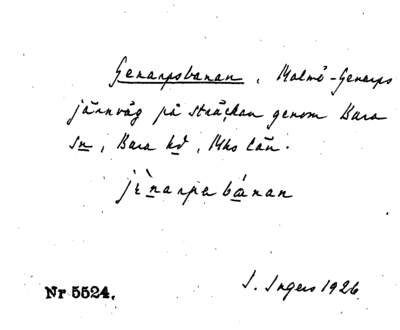 Genarpsbanan, Malmö-Genarps
järnväg på sträckan genom Bara
sn, Bara hd, Mhs län.
jè̱narpsbá̱nan
I. Ingers 1926
Nr 5524.